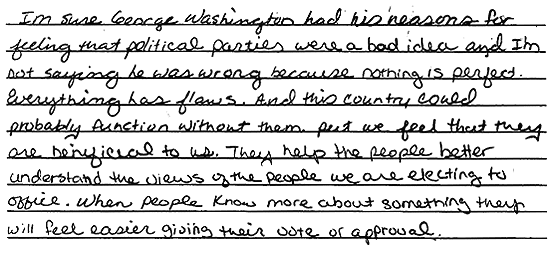 Im sure George Washington had his reasons for
feeling that political parties were a bad idea and Im
not saying he was wrong because nothing is perfect.
Everything has flaws. And this country could
probably function without them. but we feel that they
are beneficial to us. They help the people better
understand the views of the people we are electing to
office. When people know more about something they
will feel easier giving their vote or approval.